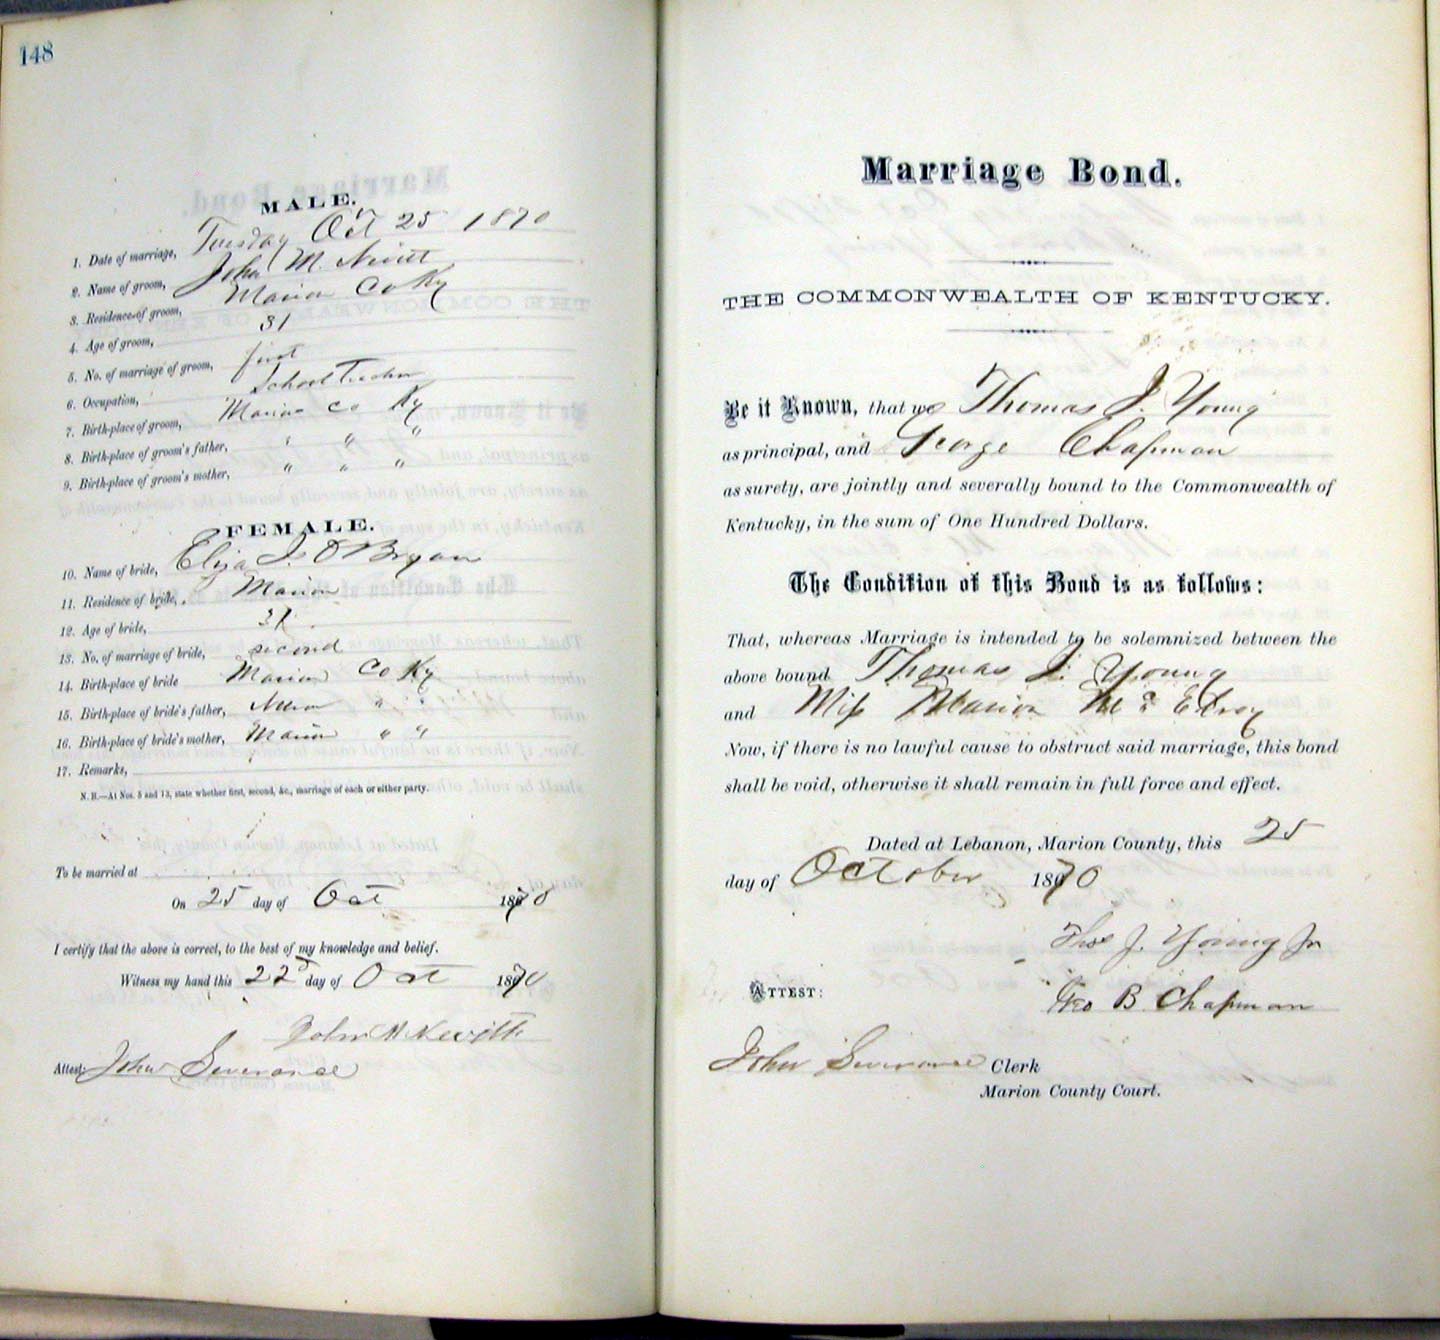 148
MALE.
1. Date of marriage, Tuesday Oct 25 1870
2. Name of groom, John M. Nevitt
3. Residence of groom, Marion Co Ky
4. Age of groom, 31
5. No. of marriage of groom, first
6. Occupation, School Teacher
7. Birth-place of groom, Marion Co Ky
8. Birth-place of groom's father, " " "
9. Birth-place of groom's mother, " " "
FEMALE.
10. Name of bride, Eliza J. O'Bryan
11. Residence of bride, Marion
12. Age of bride, 31
13. No. of marriage of bride, second
14. Birth-place of bride Marion Co Ky
15. Birth-place of bride's father, " "
16. Birth-place of bride's mother, Marion " "
17. Remarks,
N. B.—At Nos. 5 and 13, state whether first, second, &c., marriage of each or either party.
To be married at
On 25 day of Oct 1870
I certify that the above is correct, to the best of my knowledge and belief.
Witness my hand this 22d day of Oct 1870
John M Nevitt
Attest: John Severance
Marriage Bond.
THE COMMONWEALTH OF KENTUCKY.
Be it Known, that we Thomas J. Young
as principal, and George Chapman
as surety, are jointly and severally bound to the Commonwealth of
Kentucky, in the sum of One Hundred Dollars.
The Condition of this Bond is as follows:
That, whereas Marriage is intended to be solemnized between the
above bound Thomas J. Young
and Miss Marion McElroy
Now, if there is no lawful cause to obstruct said marriage, this bond
shall be void, otherwise it shall remain in full force and effect.
Dated at Lebanon, Marion County, this 25
day of October 1870
Thos J. Young Jr
ATTEST: Geo B. Chapman
John Severance Clerk
Marion County Court.